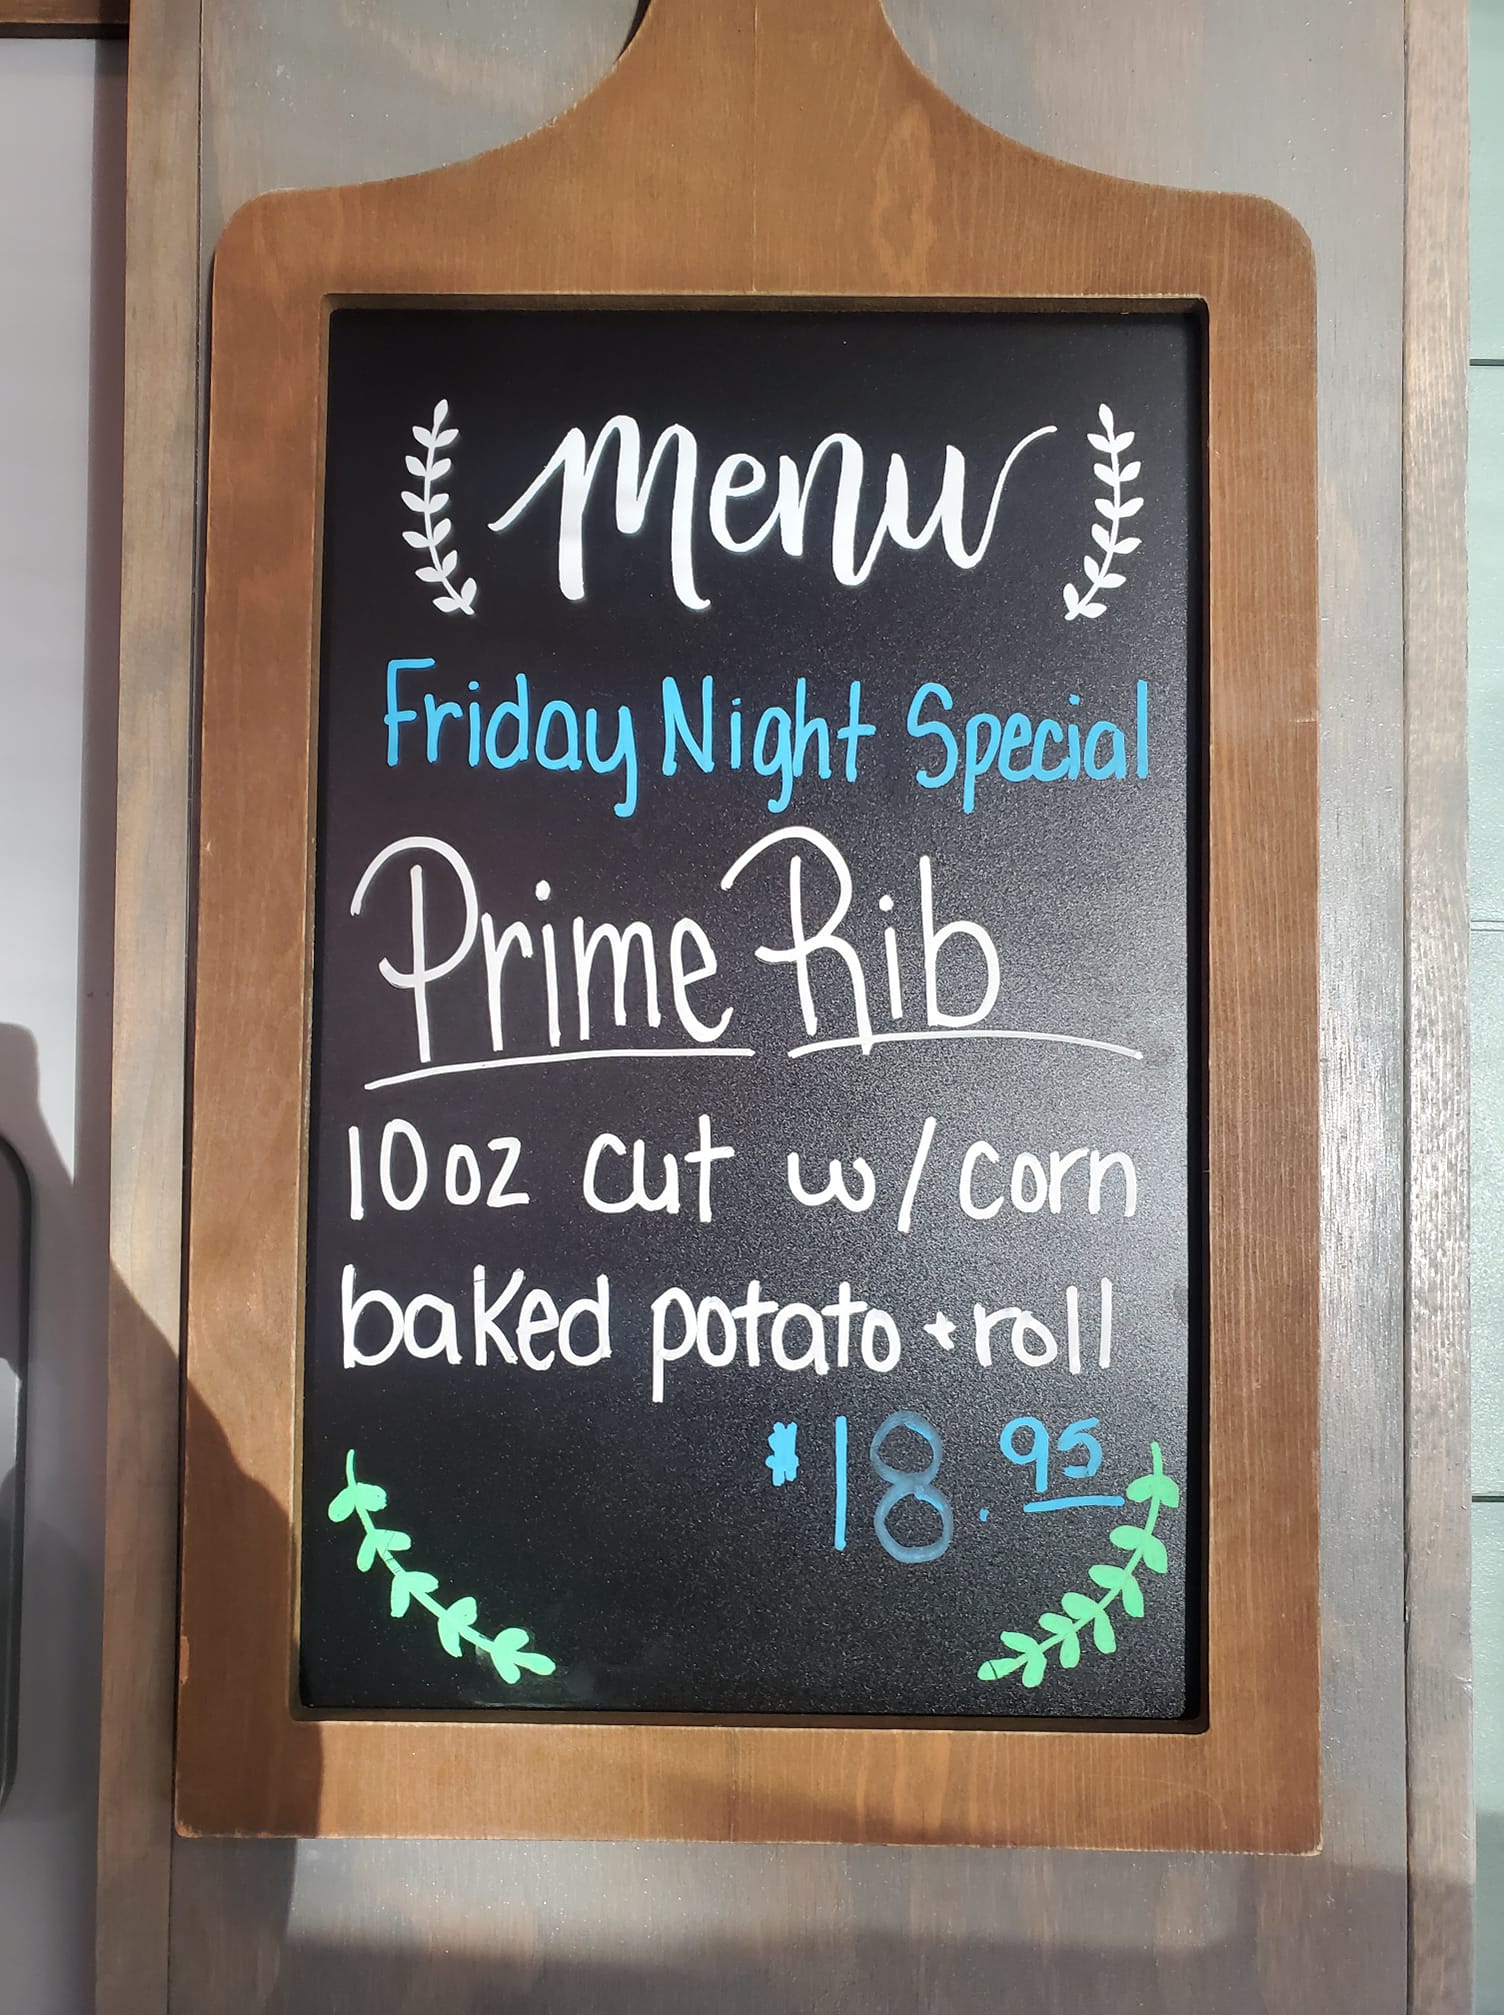 Menu
Friday Night Special
Prime Rib
10oz cut w/corn
baked potato + roll
$18.95